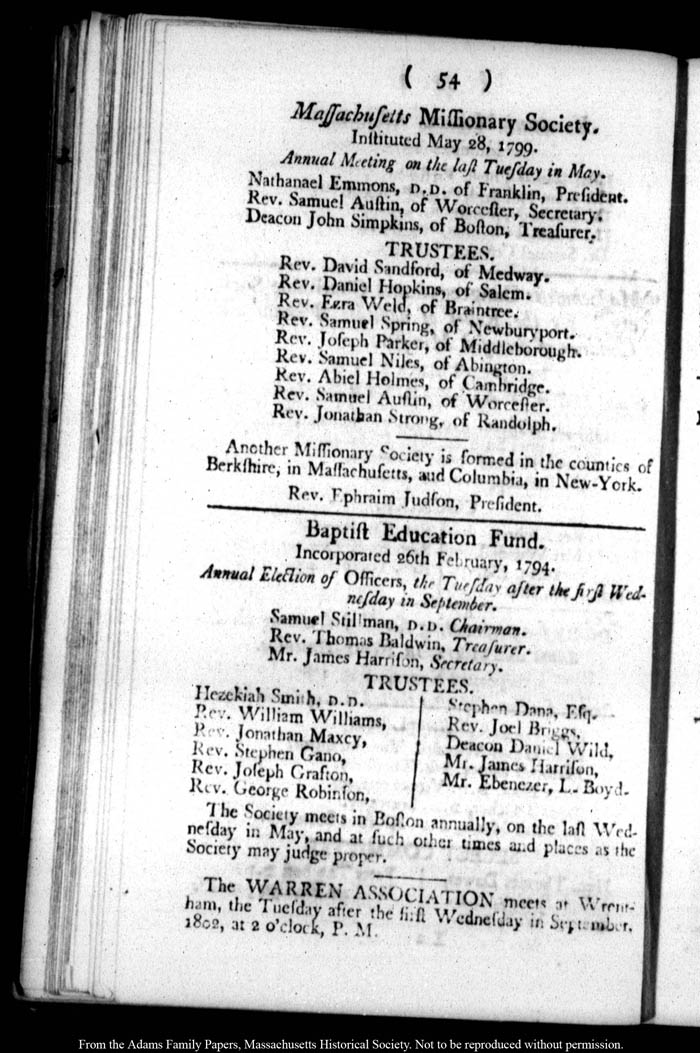 ( 54 )
Maſſachuſetts Miſſionary Society.
Inſtituted May 28, 1799.
Annual Meeting on the laſt Tueſday in May.
Nathanael Emmons, D.D. of Franklin, Preſident.
Rev. Samuel Auſtin, of Worceſter, Secretary.
Deacon John Simpkins, of Boſton, Treaſurer.
TRUSTEES.
Rev. David Sandford, of Medway.
Rev. Daniel Hopkins, of Salem.
Rev. Ezra Weld, of Braintree.
Rev. Samuel Spring, of Newburyport.
Rev. Joſeph Parker, of Middleborough.
Rev. Samuel Niles, of Abington.
Rev. Abiel Holmes, of Cambridge.
Rev. Samuel Auſtin, of Worceſter.
Rev. Jonathan Strong, of Randolph.
Another Miſſionary Society is formed in the counties of
Berkſhire, in Maſſachuſetts, and Columbia, in New-York.
Rev. Ephraim Judſon, Preſident.
Baptiſt Education Fund.
Incorporated 26th February, 1794.
Annual Election of Officers, the Tueſday after the firſt Wed-
neſday in September.
Samuel Stillman, D.D. Chairman.
Rev. Thomas Baldwin, Treaſurer.
Mr. James Harriſon, Secretary.
TRUSTEES.
Hezekiah Smith, D.D.
Rev. William Williams,
Rev. Jonathan Maxcy,
Rev. Stephen Gano,
Rev. Joſeph Grafton,
Rev. George Robinſon,
Stephen Dana, Eſq.
Rev. Joel Briggs,
Deacon Daniel Wild,
Mr. James Harriſon,
Mr. Ebenezer, L. Boyd.
The Society meets in Boſton annually, on the laſt Wed-
neſday in May, and at ſuch other times and places as the
Society may judge proper.
The WARREN ASSOCIATION meets at Wrent-
ham, the Tueſday after the firſt Wedneſday in September,
1802, at 2 o'clock, P. M.
From the Adams Family Papers, Massachusetts Historical Society. Not to be reproduced without permission.